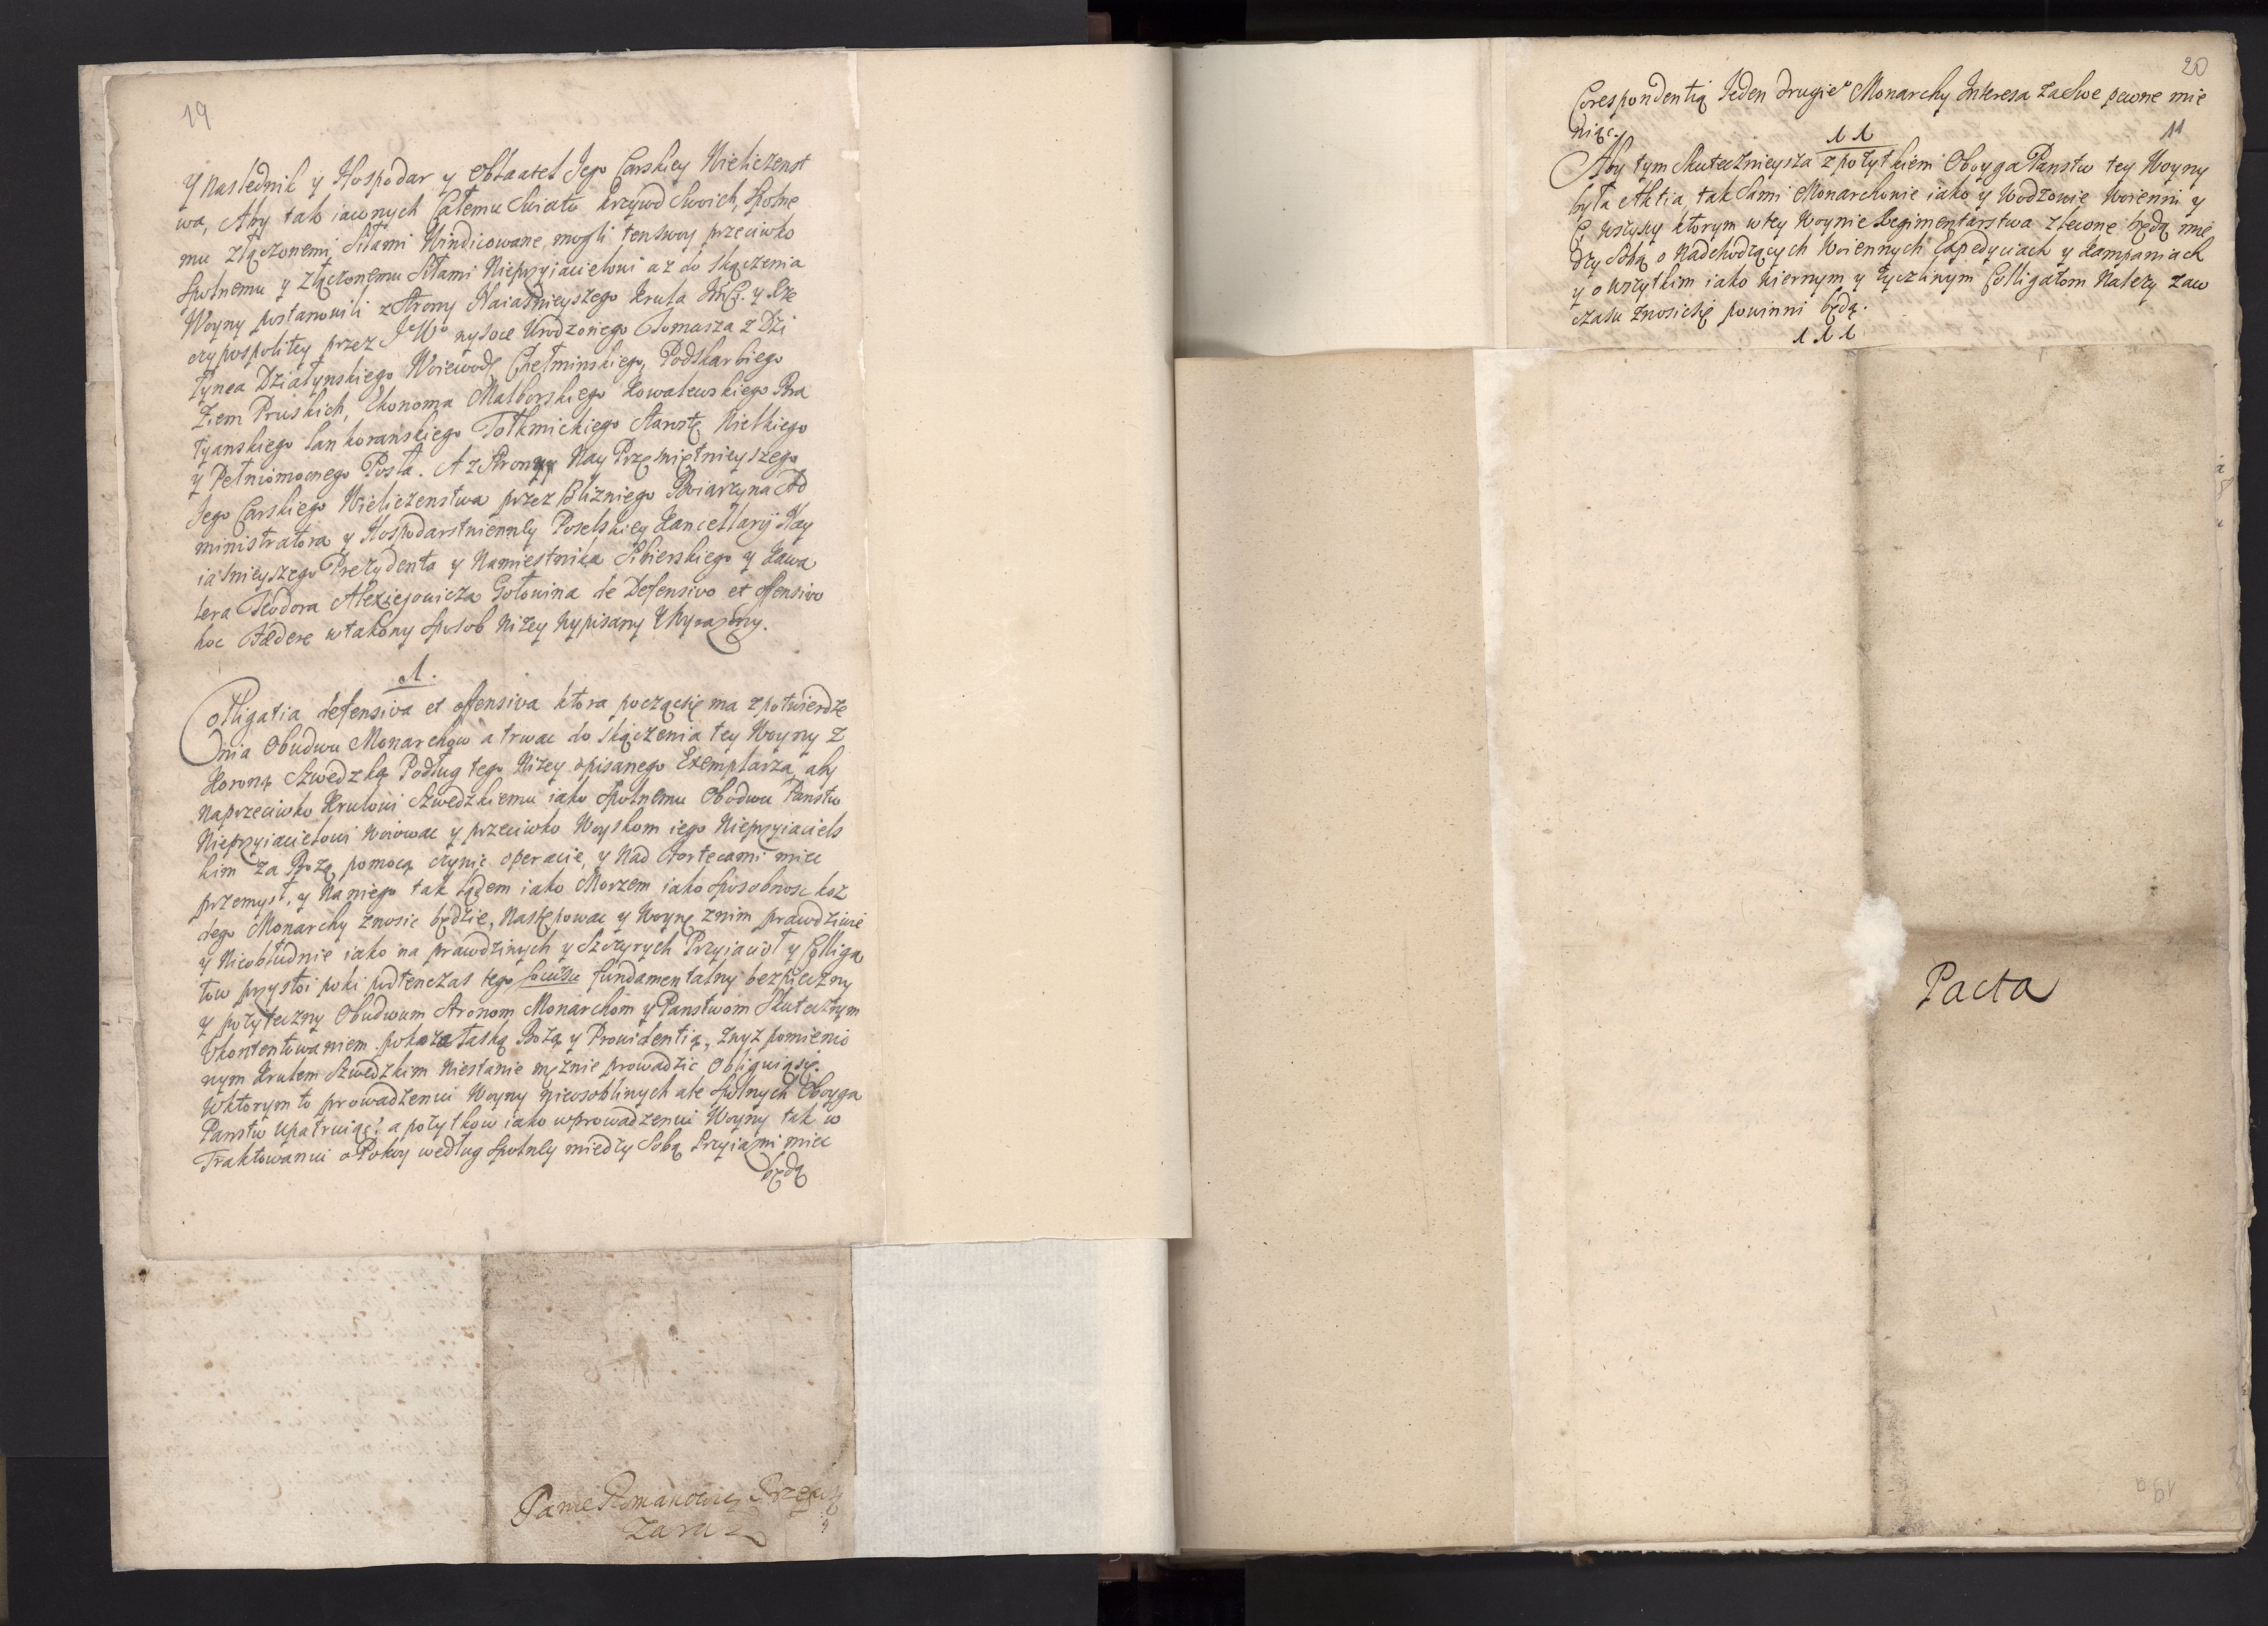 19
Y naslednik y Hospodar y Obłaatel Jego Carskiey Wieliczenst
wa, Aby tak iawnych Całemu Swiatu krzywd Swoich, Spolne
mu złączonemi Siłami Windicowane mogli tenswoy przeciwko
Spolnemu y Złączonemu Siłami Nieprzyiacielowi aż do Skączenia
Woyny postanowili z Strony Naiasnieyszego Krula y Rze
czypospolitey przez wysoce Urodzonego Tomasza z Dzi
łynca Działynskiego Woiewodę Chełminskiego, Podskarbiego
Ziem Pruskich, Ekonoma Malborskiego Kowalewskiego Bra
tyanskiego Lankoranskiego Tolkmickiego Starostę Wielkiego
y Pełnomocnego Posła. A z Strony Nay Prześwietnieyszego
Jego Carskiego Wieliczenstwa przez Blizniego Boiarzyna Ad
ministratora y Hospodarstwienney Poselskiey Kancellaryi Nay
iasnieyszego Prezydenta y Namiestnika Sibierskiego y Kawa
lera Teodora Alexiejowicza Gołowina de Defensivo et offensivo
hoc Fœdere w takowy Sposob niżey wypisany y wyrażony.
1.
Colligatia defensiva et offensiva ktora począcsię ma z potwierdze
nia Obudwu Monarchow a trwac do Skączenia tey Woyny z
Koroną Szwedzką Podług tego Niżey opisanego Exemplarza, aby
Naprzeciwko Krulowi Szwedzkiemu iako Spolnemu Obodwu Panstw
Nieprzyiacielowi woiowac y przeciwko Woyskom iego Nieprzyiaciels
kim za Bożą pomocą czynic operacie, y Nad Fortecami miec
przemysł, y Naniego tak Lądem iako Morzem iako Sposobnosc każ
dego Monarchy znosic będzie, Następowac y Woynę znim prawdziwie
y Nieobłudnie iako na prawdziwych y Szczyrych Przyiacioł y Colliga
tow przystoi poki podtenczas tego fundamentalny bezpieczny
y pożyteczny Obudwum Stronom Monarchom y Panstwom Skutecznym
Ukontentowaniem pokaże łaską Bożą y Prouidentią, zwyż pomienio
nym Krulem Szwedzkim Niestanie mężnie prowadzic Obliguiąsię.
Wktorym to prowadzeniu Woyny nieosobliwych ale Spolnych Oboyga
Panstw upatruiąc pożytkow iako wprowadzeniu Woyny tak w
Traktowaniu o Pokoy według Spolney między Sobą Przyiazni miec
będą
Panie Romanowicz
Zaraz
20
Corespondentią Jeden drugiego Monarchy Interesa zaswe pewne mie
niąc.
11
11
Aby tym Skutecznieysza z pożytkiem Oboyga Panstw tey Woyny
była Aktia, tak Sami Monarchowie iako y Wodzowie Woienni y
Ci wszyscy ktorym wtey Woynie Regimentarstwa zlecone będą mię
dzy Sobą o Nadchodzących Woiennych Expedyciach y Kampaniach
y o wszytkim iako wiernym y życzliwym Colligatom Należy zaw
czasu znosicsię powinni będą.
111
Pacta
19a